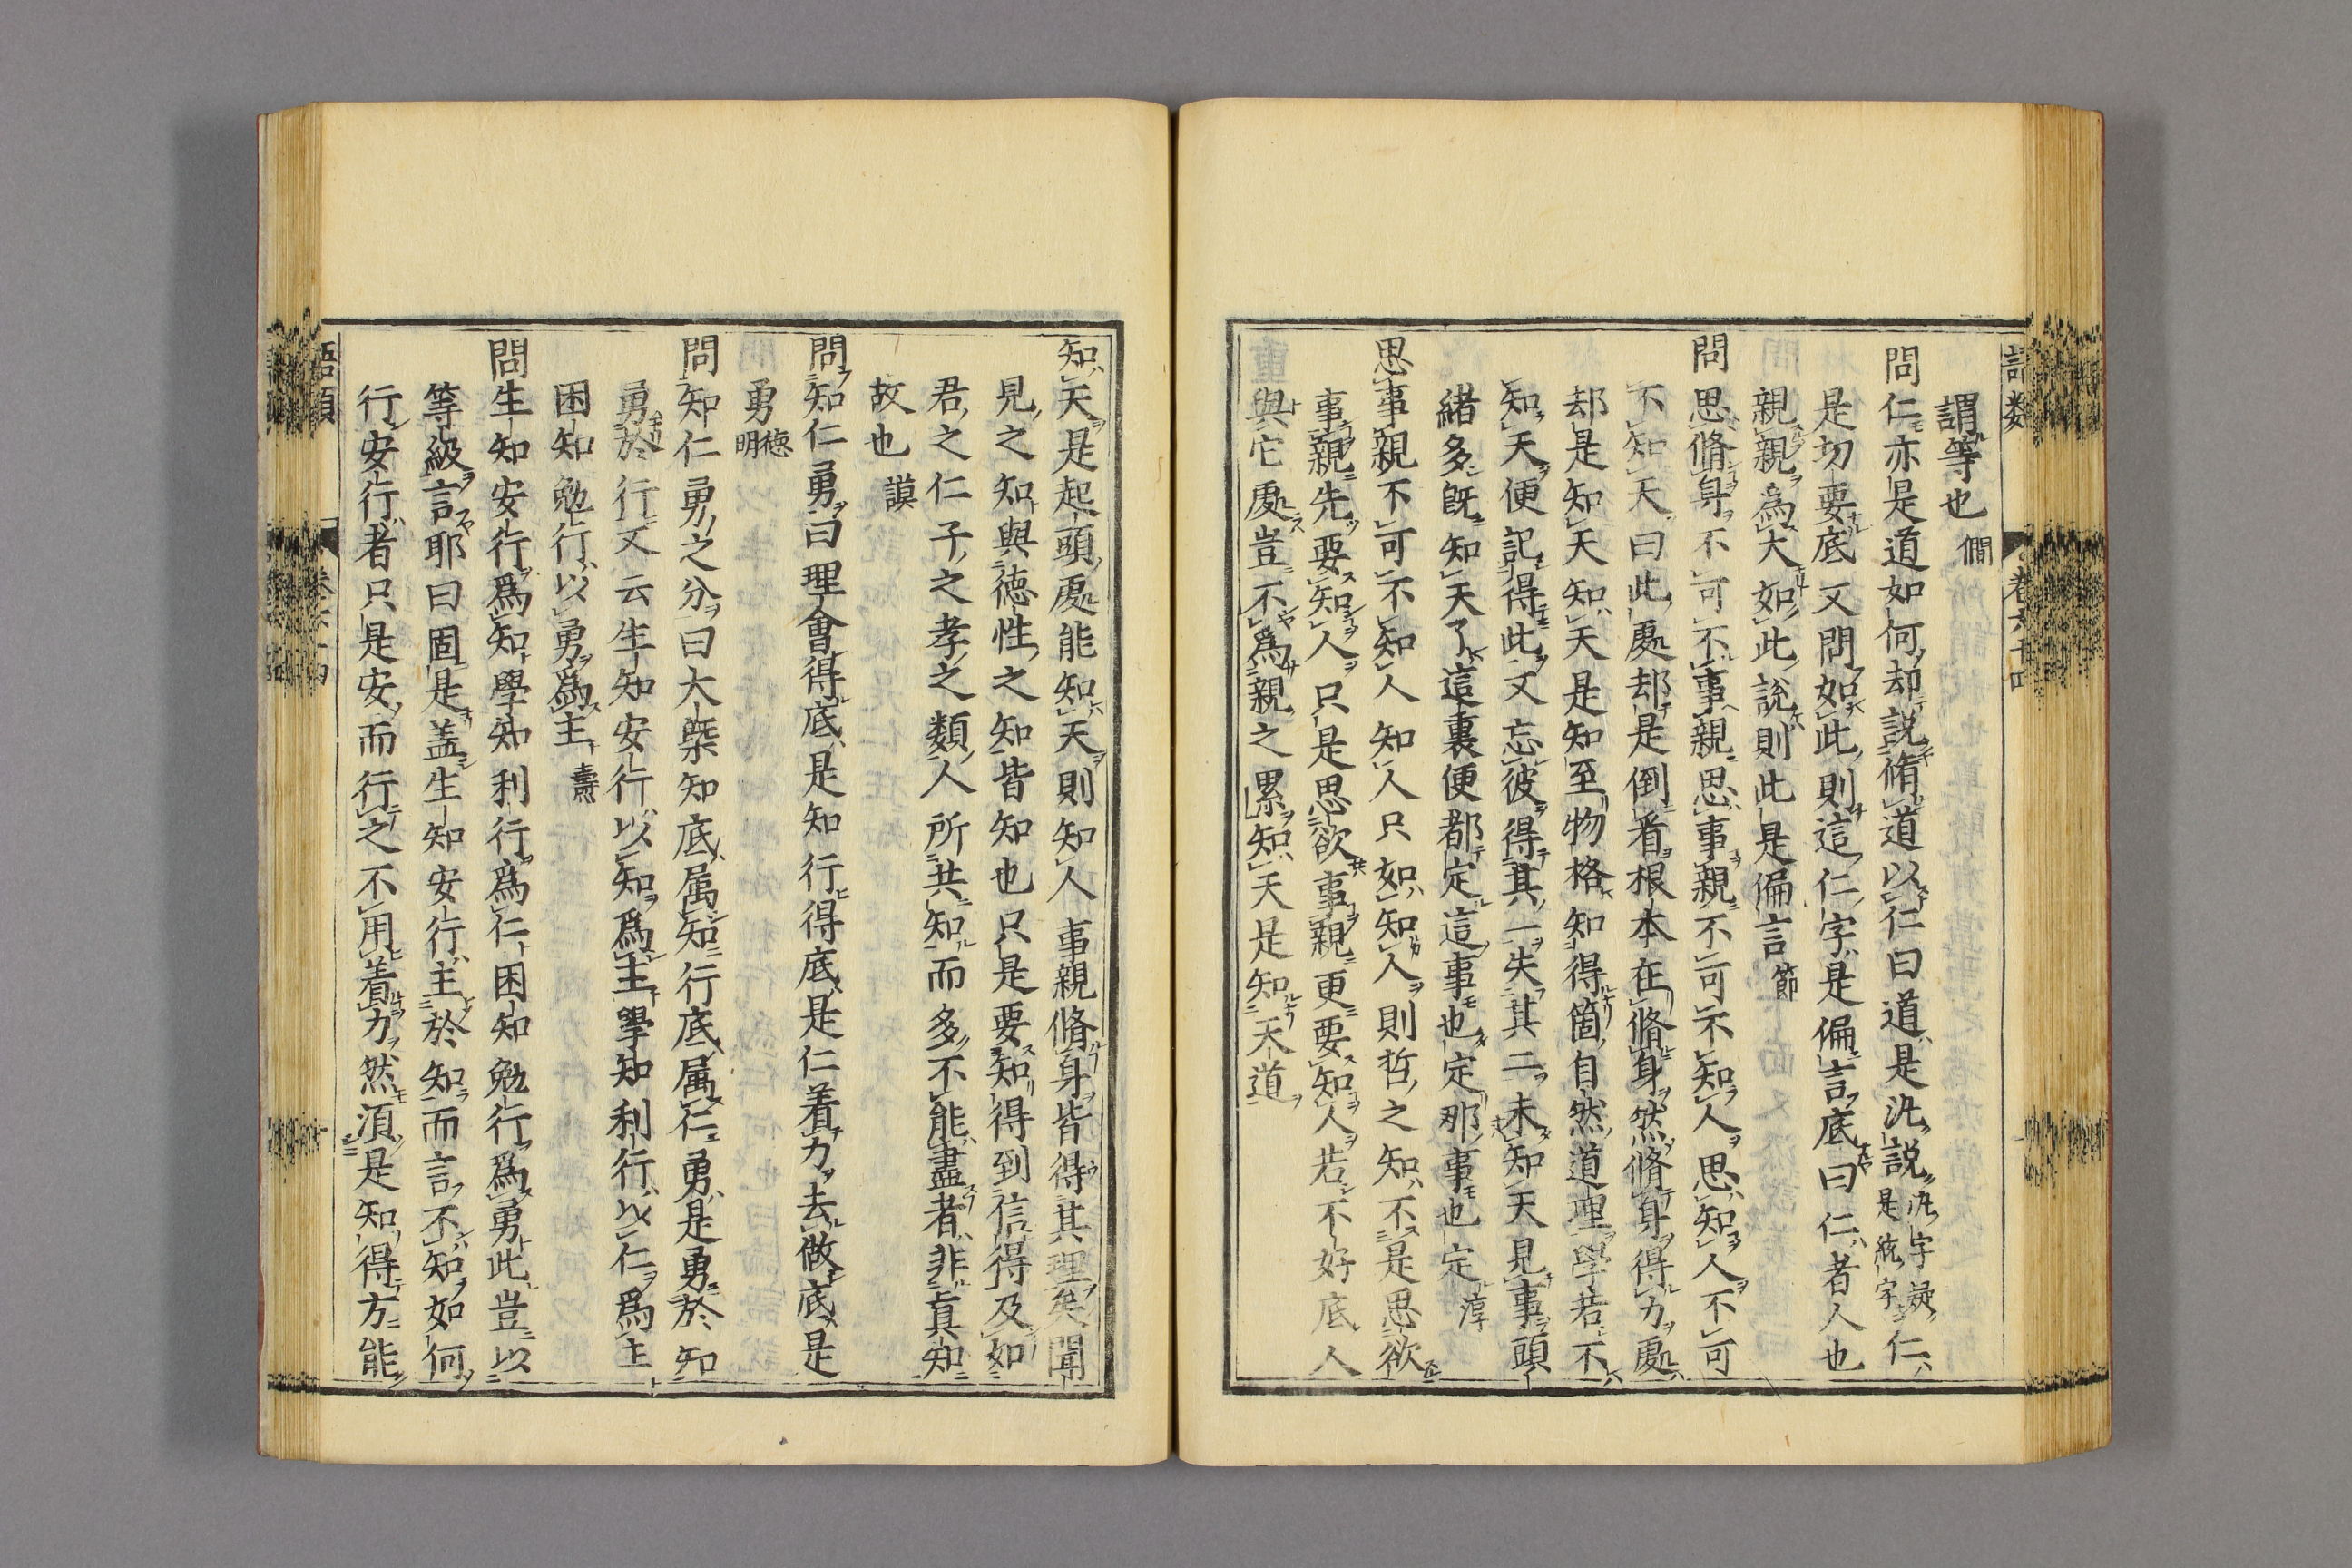 語類 卷六十四
謂等也 僩
問仁亦是道如何却説脩道以仁曰道是汎説汎字疑是統字仁
是切要底又問如此則這仁字是偏言底曰仁者人也
親親為大如此説則此是偏言 節
問思脩身不可不事親思事親不可不知人思知人不可
不知天曰此處却是倒看根本在脩身然脩身得力處
却是知天知天是知至物格知得箇自然道理學若不
知天便記得此又忘彼得其一失其二未知天見事頭
緒多既知天了這裏便都定這事也定那事也定 淳
思事親不可不知人知人只如知人則哲之知不是思欲
事親先要知人只是思欲事親更要知人若不好底人
與它處豈不為親之累知天是知天道
知天是起頭處能知天則知人事親脩身皆得其理矣聞
見之知與德性之知皆知也只是要知得到信得及如
君之仁子之孝之類人所共知而多不能盡者非真知
故也 謨
問知仁勇曰理會得底是知行得底是仁着力去做底是
勇 德明
問知仁勇之分曰大槩知底属知行底属仁勇是勇於知
勇於行又云生知安行以知爲主學知利行以仁爲主
困知勉行以勇爲主 燾
問生知安行爲知學知利行爲仁困知勉行爲勇此豈以
等級言耶曰固是盖生知安行主於知而言不知如何
行安行者只是安而行之不用着力然湏是知得方能
語類 卷六十四